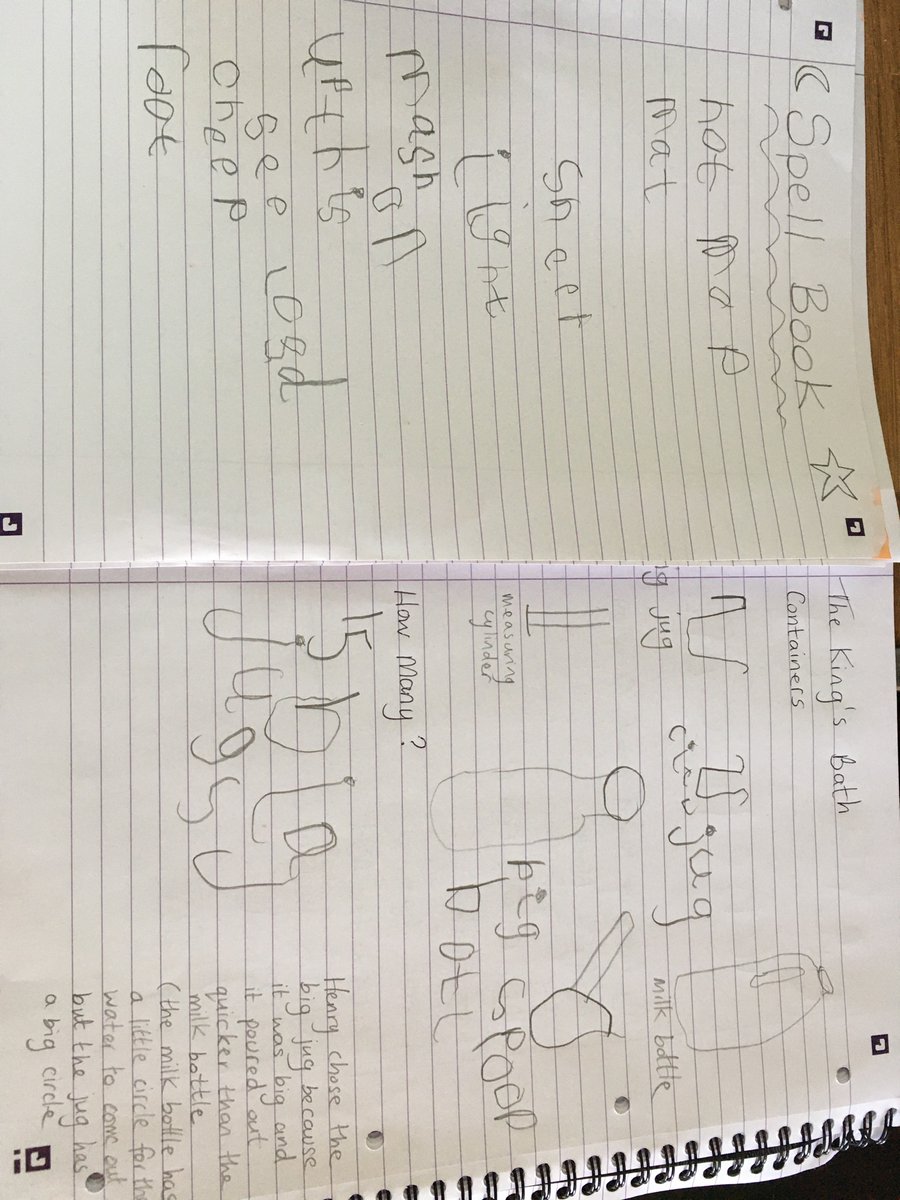 ( Spell Book
hot map
mat
shelf
light
mash
on
up this
see load
cheep
foot
The King's Bath
Containers
ig jug
jug
milk bottle
measuring
cylinder
big spoon
botl
How many?
15 big
jugs
Henry chose the
big jug because
it was big and
it poured out
quicker than the
milk bottle
(the milk bottle has
a little circle for the
water to come out
but the jug has
a big circle